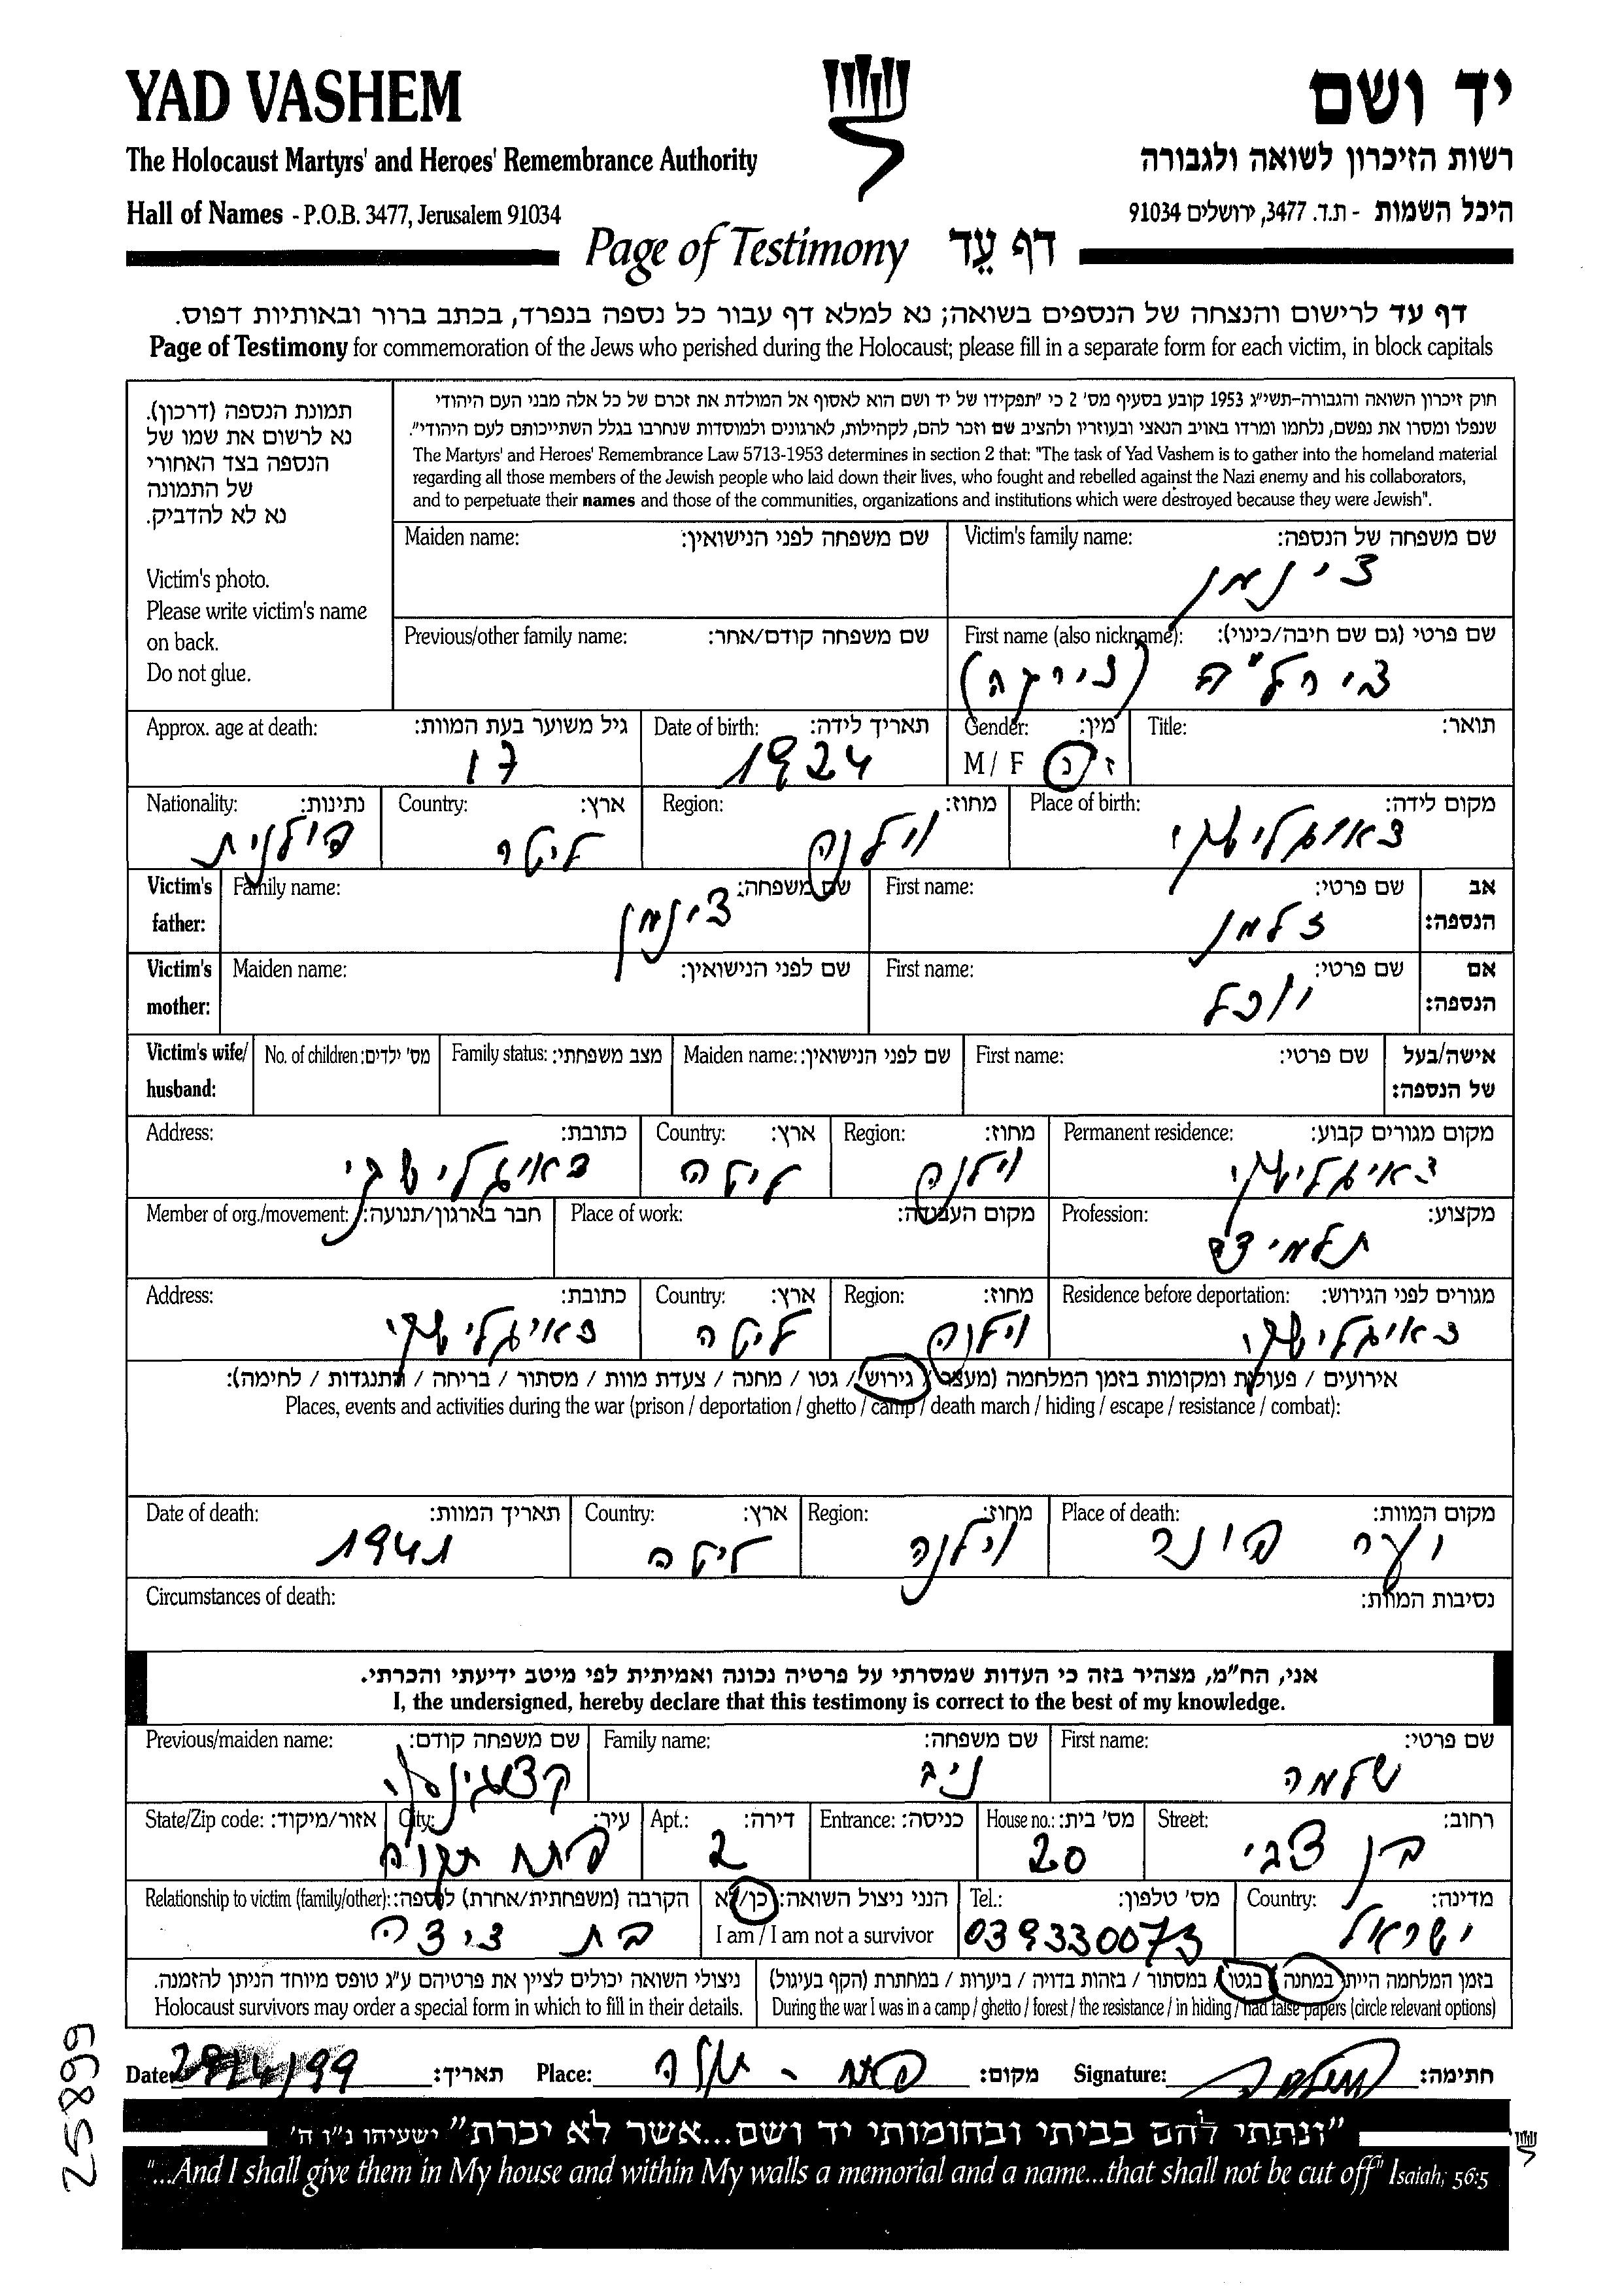 YAD VASHEM
יד ושם
The Holocaust Martyrs' and Heroes' Remembrance Authority
רשות הזיכרון לשואה ולגבורה
Hall of Names - P.O.B. 3477, Jerusalem 91034
היכל השמות - ת.ד. 3477, ירושלים 91034
Page of Testimony דף עֵד
דף עד לרישום והנצחה של הנספים בשואה; נא למלא דף עבור כל נספה בנפרד, בכתב ברור ובאותיות דפוס.
Page of Testimony for commemoration of the Jews who perished during the Holocaust; please fill in a separate form for each victim, in block capitals
תמונת הנספה (דרכון).
נא לרשום את שמו של
הנספה בצד האחורי
של התמונה
נא לא להדביק.
Victim's photo.
Please write victim's name
on back.
Do not glue.
חוק זיכרון השואה והגבורה-תשי"ג 1953 קובע בסעיף מס' 2 כי "תפקידו של יד ושם הוא לאסוף אל המולדת את זכרם של כל אלה מבני העם היהודי
שנפלו ומסרו את נפשם, נלחמו ומרדו באויב הנאצי ובעוזריו ולהציב שם וזכר להם, לקהילות, לארגונים ולמוסדות שנחרבו בגלל השתייכותם לעם היהודי".
The Martyrs' and Heroes' Remembrance Law 5713-1953 determines in section 2 that: "The task of Yad Vashem is to gather into the homeland material
regarding all those members of the Jewish people who laid down their lives, who fought and rebelled against the Nazi enemy and his collaborators,
and to perpetuate their names and those of the communities, organizations and institutions which were destroyed because they were Jewish".
Victim's family name: שם משפחה של הנספה:
צינמן
Maiden name: שם משפחה לפני הנישואין:
First name (also nickname): שם פרטי (גם שם חיבה/כינוי):
Previous/other family name: שם משפחה קודם/אחר:
Title: תואר:
Gender: מין:
M / F ז / נ
Date of birth: תאריך לידה:
1924
Approx. age at death: גיל משוער בעת המוות:
17
Place of birth: מקום לידה:
Region: מחוז:
וילנה
Country: ארץ:
ליטה
Nationality: נתינות:
פולנית
Victim's father: אב הנספה:
First name: שם פרטי:
זלמן
Family name: שם משפחה:
צינמן
Victim's mother: אם הנספה:
First name: שם פרטי:
Maiden name: שם לפני הנישואין:
Victim's wife/ husband: אישה/בעל של הנספה:
First name: שם פרטי:
Maiden name: שם לפני הנישואין:
Family status: מצב משפחתי:
No. of children: מס' ילדים:
Permanent residence: מקום מגורים קבוע:
Region: מחוז:
וילנה
Country: ארץ:
ליטה
Address: כתובת:
Profession: מקצוע:
תלמידה
Place of work: מקום העבודה:
Member of org./movement: חבר בארגון/תנועה:
Residence before deportation: מגורים לפני הגירוש:
Region: מחוז:
וילנה
Country: ארץ:
ליטה
Address: כתובת:
אירועים / פעולות ומקומות בזמן המלחמה (מעצר / גירוש / גטו / מחנה / צעדת מוות / מסתור / בריחה / התנגדות / לחימה):
Places, events and activities during the war (prison / deportation / ghetto / camp / death march / hiding / escape / resistance / combat):
Place of death: מקום המוות:
יער פונר
Region: מחוז:
וילנה
Country: ארץ:
ליטה
Date of death: תאריך המוות:
1941
Circumstances of death: נסיבות המוות:
אני, הח"מ, מצהיר בזה כי העדות שמסרתי על פרטיה נכונה ואמיתית לפי מיטב ידיעתי והכרתי.
I, the undersigned, hereby declare that this testimony is correct to the best of my knowledge.
First name: שם פרטי:
שלמה
Family name: שם משפחה:
ניב
Previous/maiden name: שם משפחה קודם:
Street: רחוב:
בן צבי
House no.: מס' בית:
20
Entrance: כניסה:
Apt.: דירה:
2
City: עיר:
פתח תקוה
State/Zip code: אזור/מיקוד:
Country: מדינה:
ישראל
Tel.: מס' טלפון:
039330073
הנני ניצול השואה: כן/לא
I am / I am not a survivor
Relationship to victim (family/other): הקרבה (משפחתית/אחרת) לנספה:
בת דודה
בזמן המלחמה הייתי במחנה / בגטו / במסתור / בזהות בדויה / ביערות / במחתרת (הקף בעיגול)
During the war I was in a camp / ghetto / forest / the resistance / in hiding / had false papers (circle relevant options)
ניצולי השואה יכולים לציין את פרטיהם ע"ג טופס מיוחד הניתן להזמנה.
Holocaust survivors may order a special form in which to fill in their details.
Signature: חתימה:
Place: מקום:
Date: תאריך:
25899
"ונתתי להם בביתי ובחומותי יד ושם...אשר לא יכרת" ישעיהו נ"ו ה'
"...And I shall give them in My house and within My walls a memorial and a name...that shall not be cut off" Isaiah, 56:5